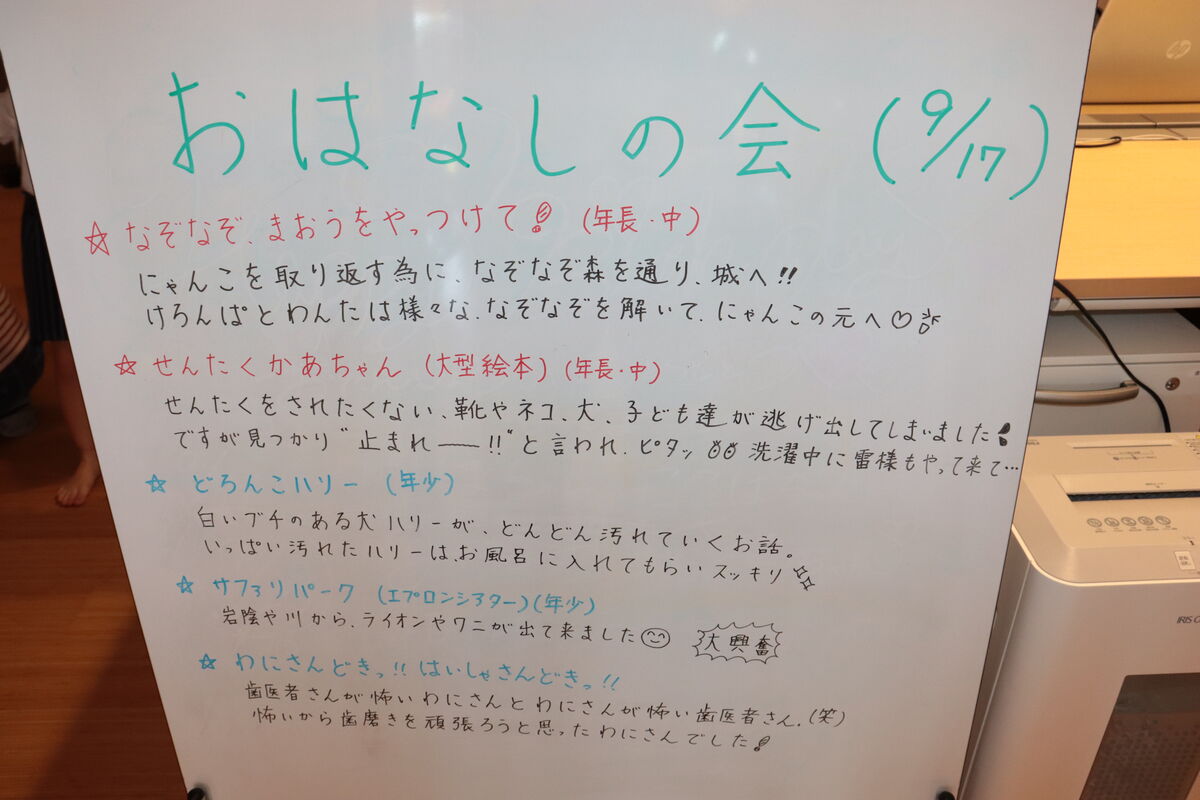 おはなしの会 (9/17)
☆ なぞなぞ、まおうをやっつけて! (年長・中)
にゃんこを取り返す為に、なぞなぞ森を通り、城へ!!
けろんぱとわんたは様々な、なぞなぞを解いて、にゃんこの元へ♡
☆ せんたくかあちゃん (大型絵本) (年長・中)
せんたくをされたくない、靴やネコ、犬、子ども達が逃げ出してしまいました!
ですが見つかり"止まれ――!!"と言われ、ピタッ 洗濯中に雷様もやって来て…
☆ どろんこハリー (年少)
白いブチのある犬ハリーが、どんどん汚れていくお話。
いっぱい汚れたハリーは、お風呂に入れてもらいスッキリ
☆ サファリパーク (エプロンシアター)(年少)
岩陰や川から、ライオンやワニが出て来ました
大興奮
☆ わにさんどきっ!! はいしゃさんどきっ!!
歯医者さんが怖いわにさんとわにさんが怖い歯医者さん。(笑)
怖いから歯磨きを頑張ろうと思ったわにさんでした!
hp